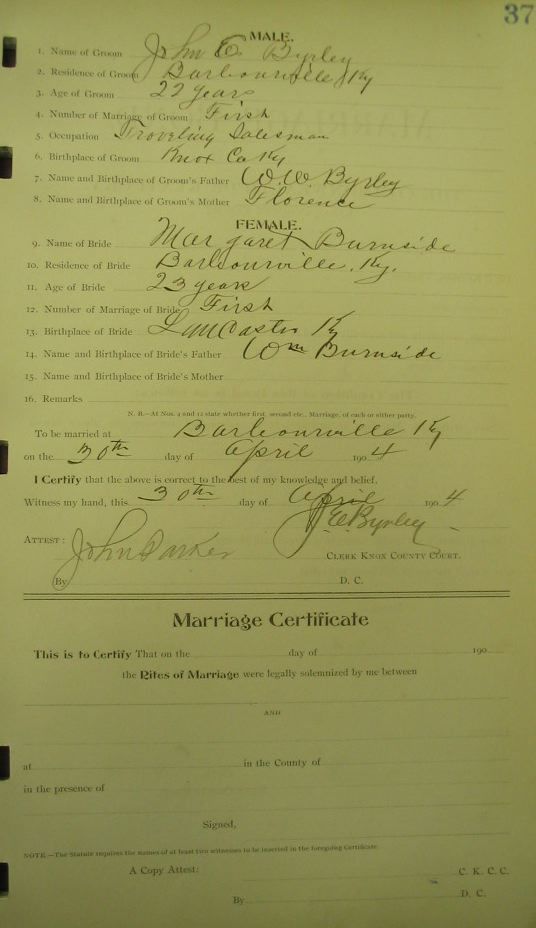 37
MALE.
1. Name of Groom John E Byrley
2. Residence of Groom Barbourville, Ky
3. Age of Groom 22 years
4. Number of Marriage of Groom First
5. Occupation Traveling Salesman
6. Birthplace of Groom Knox Co Ky
7. Name and Birthplace of Groom's Father W. W. Byrley
8. Name and Birthplace of Groom's Mother Florence
FEMALE.
9. Name of Bride Margaret Burnside
10. Residence of Bride Barbourville, Ky.
11. Age of Bride 23 years
12. Number of Marriage of Bride First
13. Birthplace of Bride Lancaster Ky
14. Name and Birthplace of Bride's Father Wm Burnside
15. Name and Birthplace of Bride's Mother
16. Remarks
N. B.—At Nos. 4 and 12 state whether first, second etc., Marriage, of each or either party.
To be married at Barbourville Ky
on the 30th day of April 1904
I Certify that the above is correct to the best of my knowledge and belief.
Witness my hand, this 30th day of April 1904
J E Byrley
ATTEST: John Parker CLERK KNOX COUNTY COURT.
By D. C.
Marriage Certificate
This is to Certify That on the day of 190
the Rites of Marriage were legally solemnized by me between
AND
at in the County of
in the presence of
Signed,
NOTE.—The Statute requires the names of at least two witnesses to be inserted in the foregoing Certificate.
A Copy Attest: C. K. C. C.
By D. C.